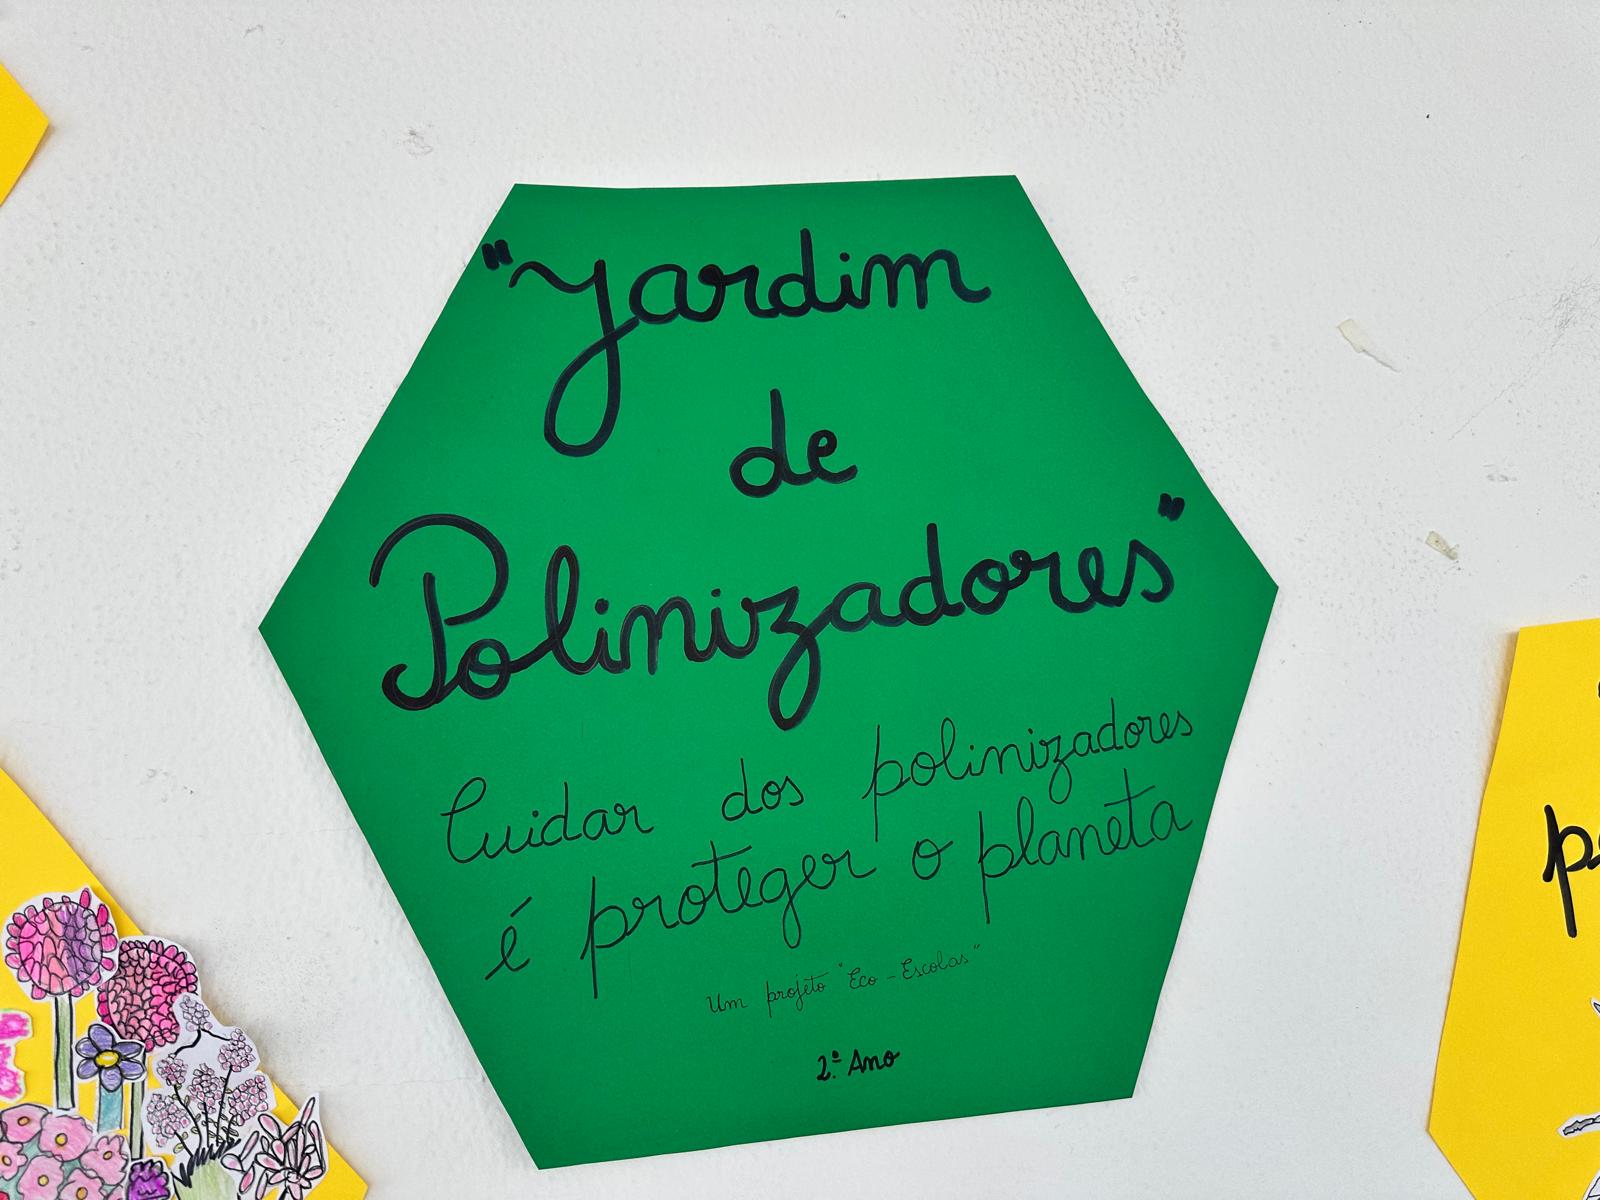 "Jardim
de
Polinizadores"
Cuidar dos polinizadores
é proteger o planeta
Um projeto "Eco-Escolas"
2.º Ano